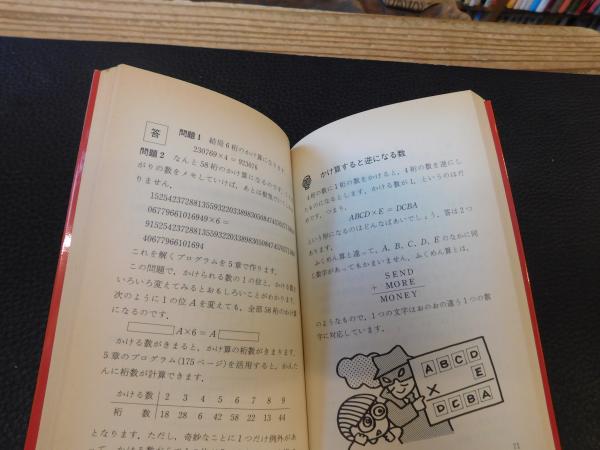 答
問題1 結局6桁のかけ算になります.
230769×4＝923076
問題2 なんと58桁のかけ算になるのです.
がりの数をメモしていけば，あとは根気
りません.
1525423728813559322033898305084745762
0677966101694­9×6＝
9152542372881355932203389830508474576
2
40677966101694
これを解くプログラムを5章で作ります.
この問題で，かけられる数の1の位と，かける数を
いろいろ変えてみるとおもしろいことがわかります.
次のように1の位Aを変えても，全部58桁のかけ算
になるのです.
A×6＝A
かける数がきまると，かけ算の桁数がきまります.
5章のプログラム(175ページ)を活用すると，かんた
んに桁数が計算できます.
かける数 2 3 4 5 6 7 8 9
桁 数 18 28 6 42 58 22 13 44
となります．ただし，奇妙なことに1つだけ例外があ
かけ算すると逆になる数
4桁の数に1桁の数をかけると，4桁の数を逆にし
たものになるとします．かける数が1，というのはだ
めです．つまり，
ABCD×E＝DCBA
という形になるのはどんなばあいでしょう．答は1つ
あります.
ふくめん算と違って，A，B，C，D，Eのなかに同
じ数字があってもかまいません．ふくめん算とは，
SEND
+ MORE
MONEY
のようなもので，1つの文字はおのおの違う1つの数
字に対応しています.
ABCD
× E
DCBA
21